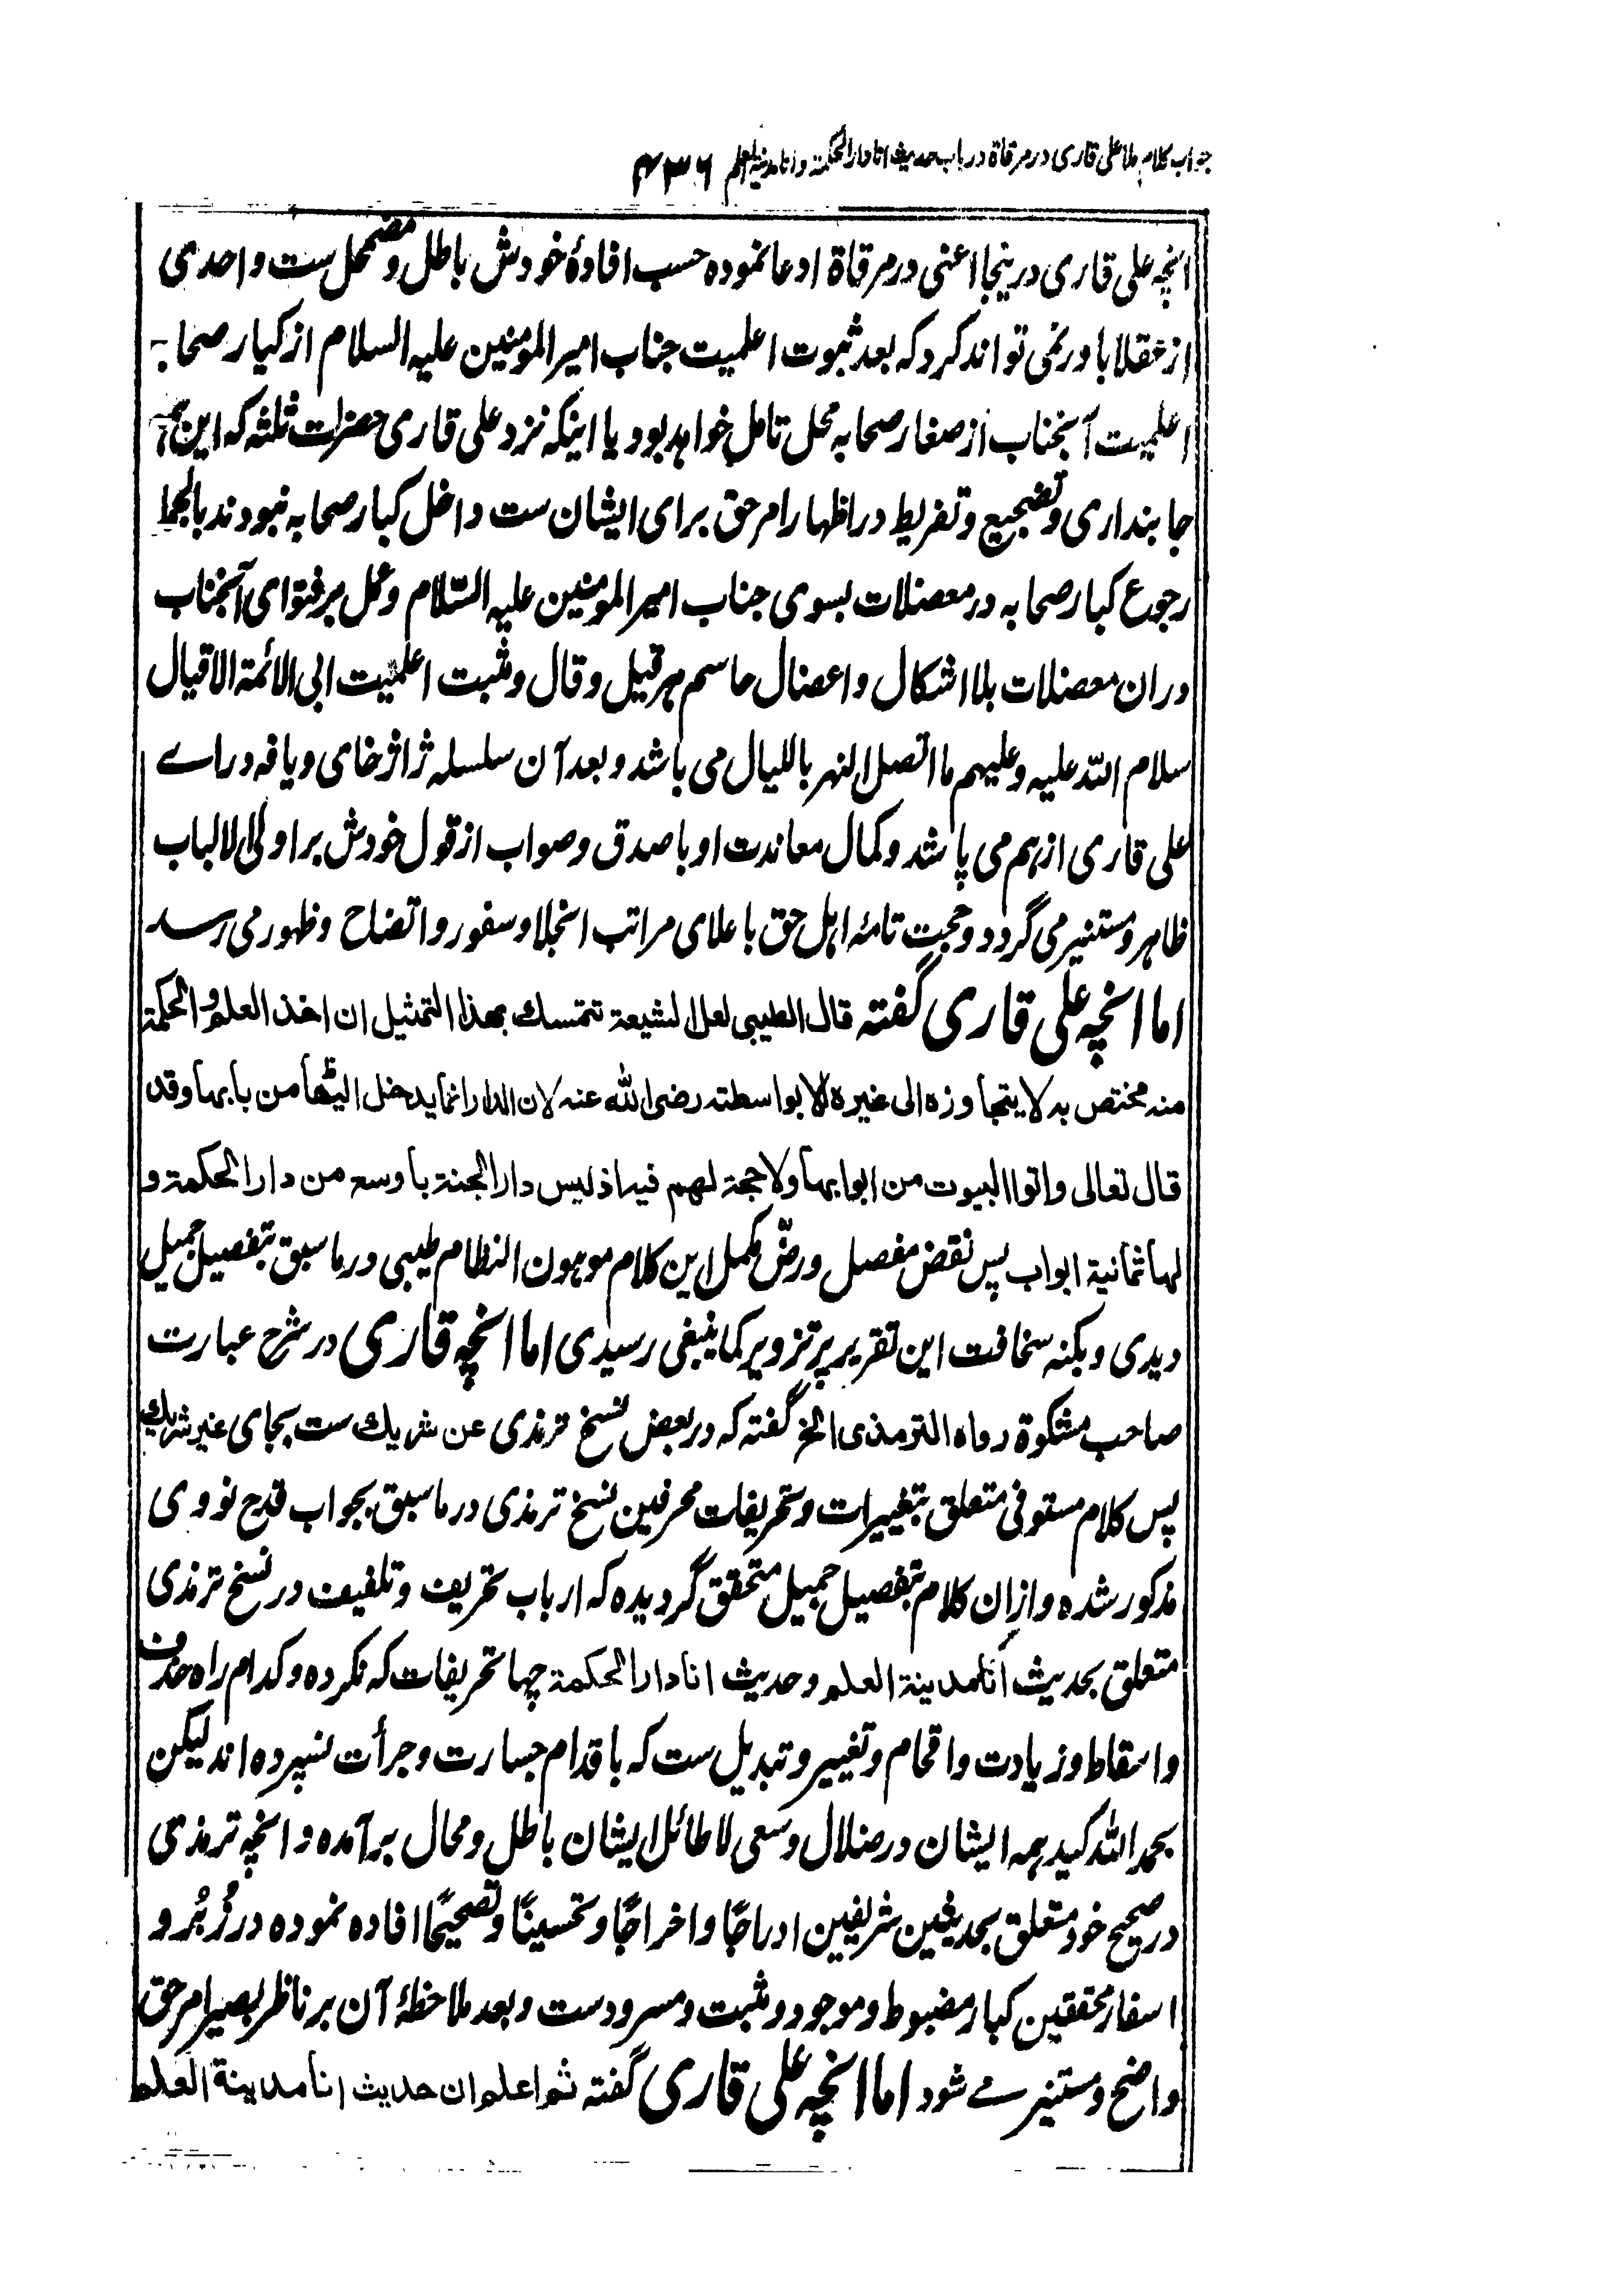 جواب کلام ملا علی قاری در مرقاة در باب حدیث انا دار الحکمة و انا مدینة العلم ۴۳۶
انچه علی قاری درینجا اعنی در مرقاة ادعا نموده حسب افادهٔ خودش باطل و مضمحل ست و احدی
از عقلا باور نمی تواند کرد که بعد ثبوت اعلمیت جناب امیر المومنین علیه السلام از کبار صحابه
اعلمیت آنجناب از صغار صحابه محل تامل خواهد بود یا اینکه نزد علی قاری حضرات ثلثه که این همه
جابنداری و تضجیع و تفریط در اظهار امر حق برای ایشان ست داخل کبار صحابه نبودند بالجمله
رجوع کبار صحابه در معضلات بسوی جناب امیر المومنین علیه السّلام و عمل بر فتوای آنجناب
دران معضلات بلا اشکال و اعضال حاسم هر قیل و قال و مثبت اعلمیت ابی الائمة الاقیال
سلام اللّه علیه و علیهم ما اتصل النهر باللیال می باشد و بعد آن سلسله ژاژخای و یافه درائے
علی قاری از هم می پاشد و کمال معاندت او با صدق و صواب از قول خودش بر اولی الالباب
ظاهر و مستنیر می گردد و حجت تامّه اهل حق باعلای مراتب انجلا و سفور و اتضاح و ظهور می رسد
اما انچه علی قاری گفته قال الطیبی لعل الشیعة تتمسك بهذا التمثیل ان اخذ العلم و الحکمة
منه مختص به لا یتجاوزه الی غیره الا بواسطته رضی الله عنه لان الدار انما یدخل الیها من بابها و قد
قال تعالی و اتوا البیوت من ابوابها و لا حجة لهم فیه اذ لیس دار الجنة باوسع من دار الحکمة و
لها ثمانیة ابواب پس نقض مفصل و رضّ مکمل این کلام موهون النظام طیبی در ما سبق بتفصیل جمیل
دیدی و بکنه سخافت این تقریر پرتزویر کما ینبغی رسیدی اما انچه قاری در شرح عبارت
صاحب مشکوة رواه الترمذی الخ گفته که در بعض نسخ ترمذی عن شریك ست بجای غیر شریك
پس کلام مستوفی متعلق بتغییرات و تحریفات محرفین نسخ ترمذی در ما سبق بجواب قدح نووی
مذکور شده و ازان کلام بتفصیل جمیل متحقق گردیده که ارباب تحریف و تلفیف در نسخ ترمذی
متعلق بحدیث انا مدینة العلم و حدیث انا دار الحکمة چها تحریفات که نکرده و کدام راه حذف
و اسقاط و زیادت و اقحام و تغییر و تبدیل ست که باقدام جسارت و جرأت نسپرده اند لیکن
بحمد اللّه کید همه ایشان در ضلال و سعی لا طائل ایشان باطل و محال برآمده و انچه ترمذی
در صحیح خود متعلق بحدیثین شریفین ادراجًا و اخراجًا و تحسینًا و تصحیحًا افاده نموده در زُبُر و
اسفار محققین کبار مضبوط و موجود و مثبت و مسرودست و بعد ملاحظهٔ آن بر ناظر بصیر امر حق
واضح و مستنیر مے شود اما انچه علی قاری گفته ثم اعلم ان حدیث انا مدینة العلم